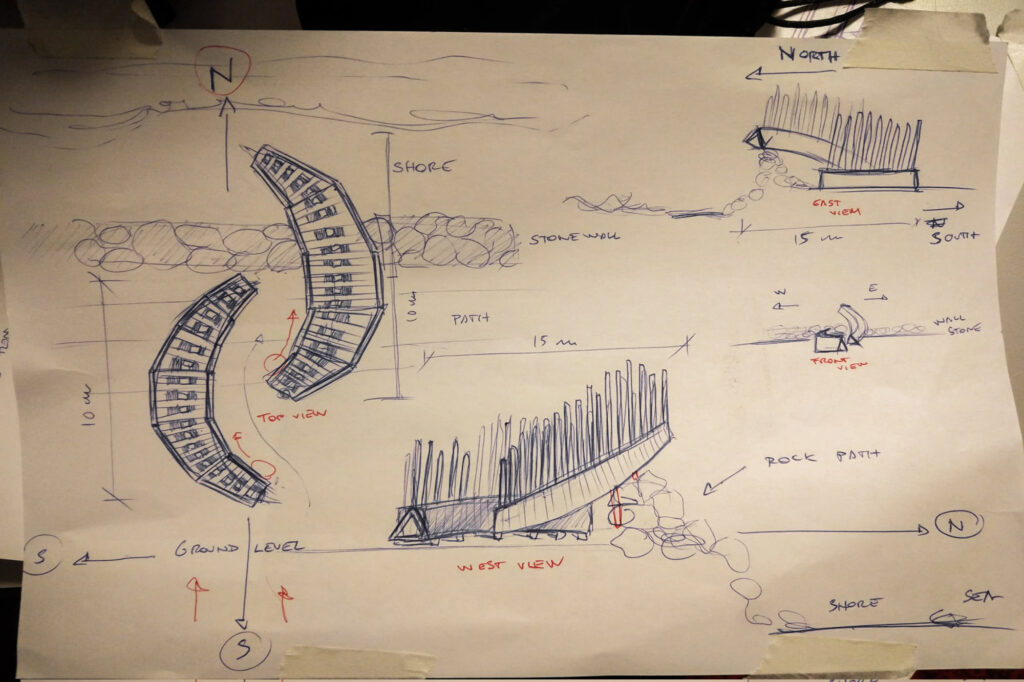 N
NORTH
SHORE
EAST VIEW
15 m
SOUTH
STONEWALL
10 m
PATH
15 m
W
E
WALL STONE
FRONT VIEW
TOP VIEW
10 m
ROCK PATH
S
GROUND LEVEL
WEST VIEW
N
SHORE
SEA
S